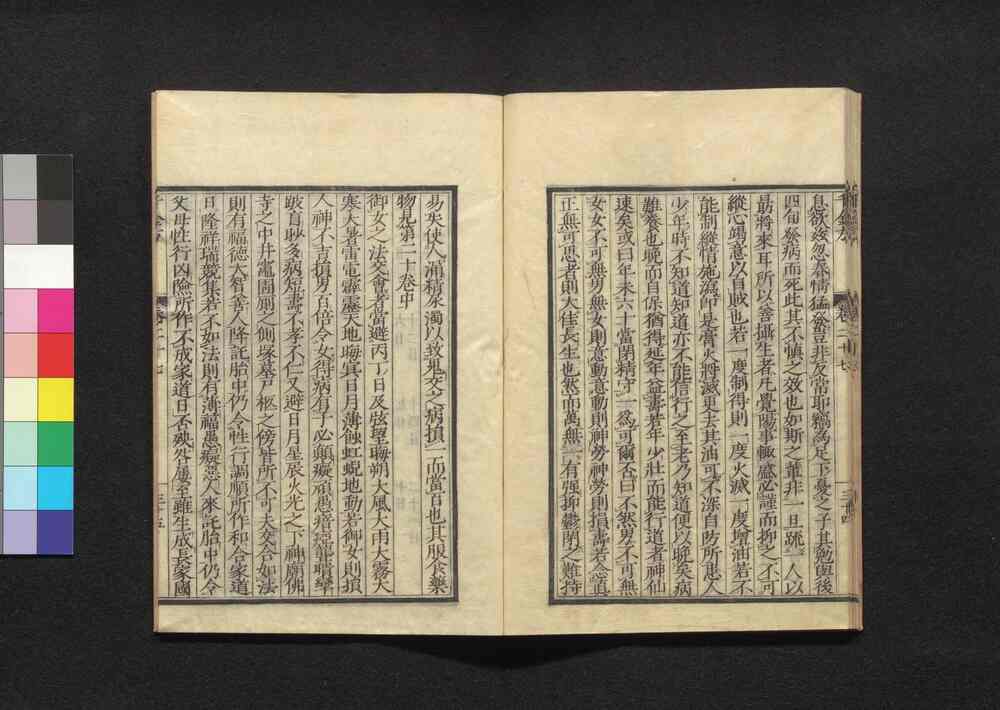 息欲兹忽春情猛發豈非反常耶竊為足下憂之子其勉歟後
四旬發病而死此其不慎之效也如斯之輩非一且疏一人以
勗將來耳所以善攝生者凡覺陽事輒盛必謹而抑之不可
縱心竭意以自賊也若一度制得則一度火滅一度增油若不
能制縱情施瀉即是膏火將滅更去其油可不深自防所患人
少年時不知道知道亦不能信行之至老乃知道便以晚矣病
難養也晚而自保猶得延年益壽若年少壯而能行道者神仙
速矣或曰年未六十當閉精守一為可爾否曰不然男不可無
女女不可無男無女則意動意動則神勞神勞則損壽若念真
正無可思者則大佳長生也然而萬無一有強抑鬱閉之難持
易失使人漏精尿濁以致鬼交之病損一而當百也其服食藥
物見第二十卷中
御女之法交會者當避丙丁日及弦望晦朔大風大雨大霧大
寒大暑雷電霹靂天地晦冥日月薄蝕虹蜺地動若御女則損
人神不吉損男百倍令女得病有子必顛癡頑愚瘖瘂聾聵攣
跛盲眇多病短壽不孝不仁又避日月星辰火光之下神廟佛
寺之中井竈圊厠之側塚墓尸柩之傍皆所不可夫交合如法
則有福德大智善人降託胎中仍令性行調順所作和合家道
日隆祥瑞競集若不如法則有薄福愚癡惡人來託胎中仍令
父母性行凶險所作不成家道日否殃咎屢至雖生成長家國